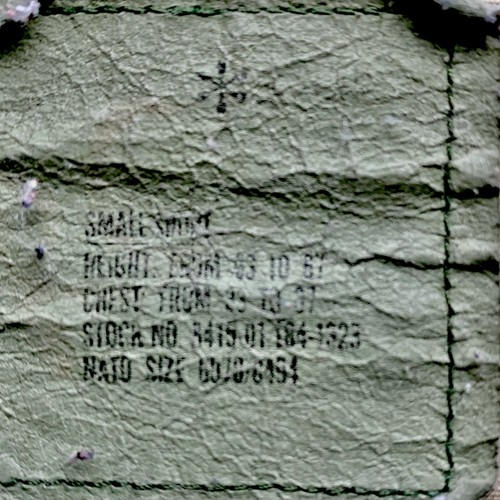 SMALL SHORT
HEIGHT. FROM 63 TO 67
CHEST FROM 33 TO 37
STOCK NO 8415-01-184-1323
NATO SIZE